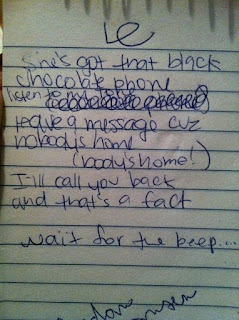 Le
she's got that black
chocolate phone
listen to
leave a message cuz
nobody's home
(body's home!)
I'll call you back
and that's a fact
wait for the beep...